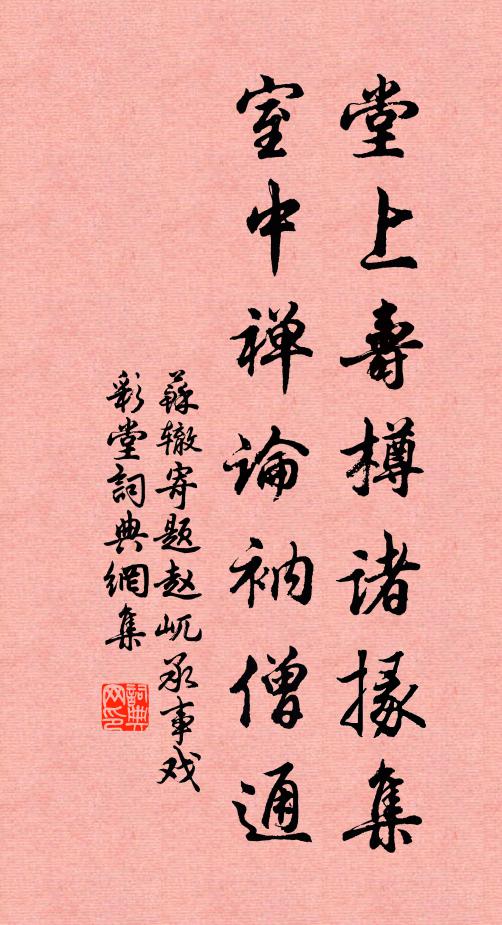 堂上壽樽諸掾集
室中禅論衲僧通
蘇辙寄题赵屼承事戏
彩堂詞典網集
詞典網印